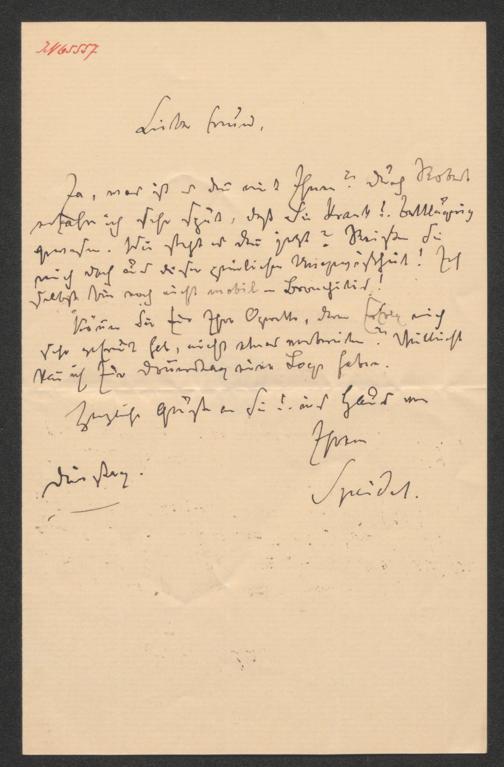 IN 65557
Lieber Freund,
Ja, was ist es denn mit Ihnen? Durch Robert
erfahre ich sehr spät, daß Sie krank u. bettlägrig
gewesen. Wie steht es denn jetzt? Reißen Sie
mich doch aus dieser peinlichen Ungewißheit! Ich
selbst bin noch nicht mobil – Bronchitis!
Können Sie für Ihre Operette, deren Erfolg mich
sehr gefreut hat, nicht etwas vorbereiten? Vielleicht
kann ich für Donnerstag eine Loge haben.
Herzliche Grüße an Sie u. Ihr Haus von
Ihrem
Speidel.
Dienstag.